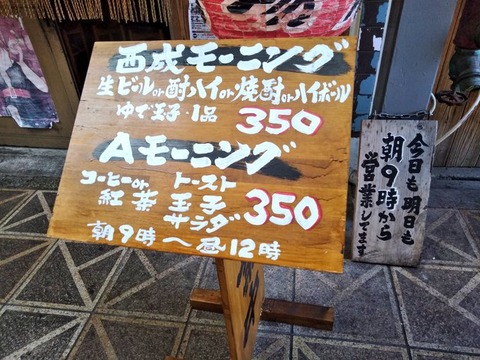 西成モーニング
生ビールor酎ハイor焼酎orハイボール
ゆで玉子・1品 350
Aモーニング
コーヒーor トースト
紅茶 玉子 350
サラダ
朝9時〜昼12時
今日も明日も
朝9時から
営業してます